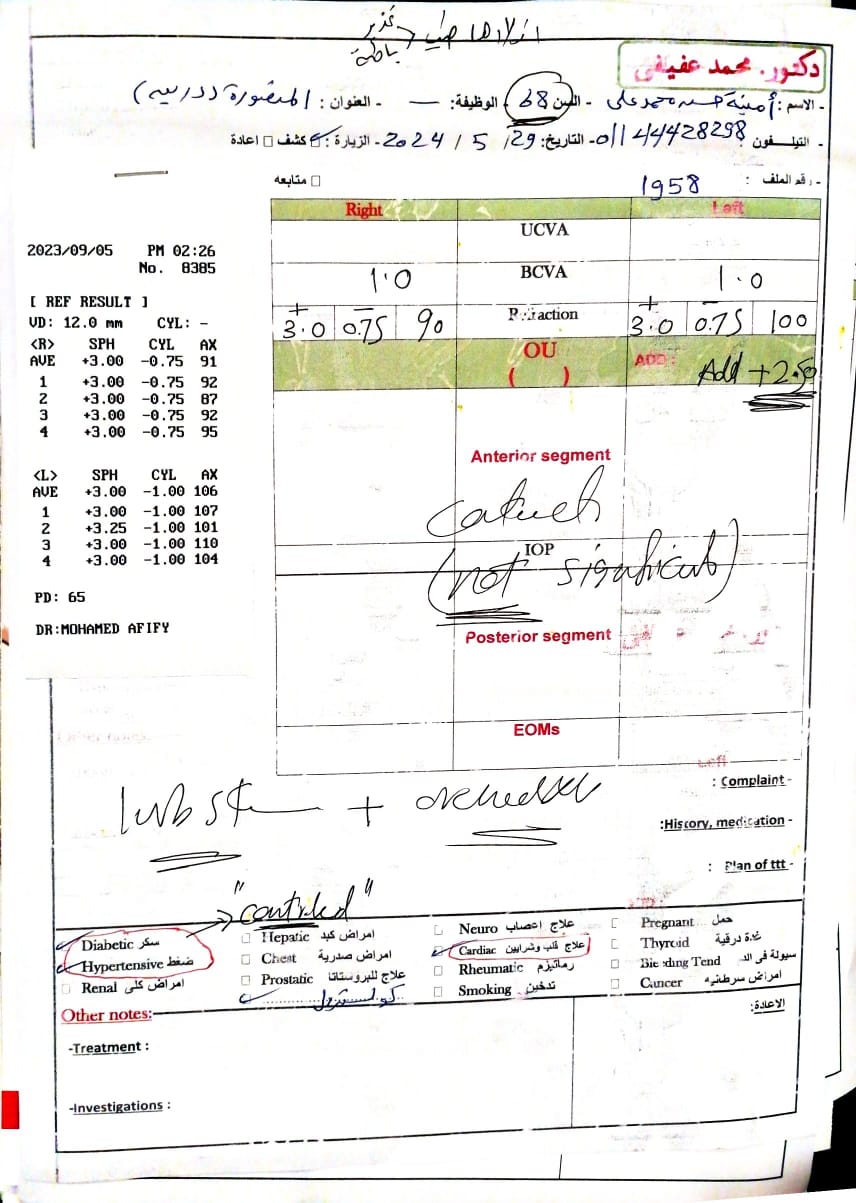 دكتور. محمد عفيفي
- الاسم: أمينة حسن محمد على - السن: 68 - الوظيفة: — - العنوان: المنصورة
- التيلفون 01144428298 - التاريخ: 29 / 5 / 2024 - الزيارة: كشف اعادة
- رقم الملف : 1958 متابعه
Right Left
UCVA
1.0 BCVA 1.0
+3.0 -0.75 90 Refraction +3.0 -0.75 100
OU ADD: Add +2.50
( )
Anterior segment
IOP
(not significant)
Posterior segment
EOMs
2023/09/05 PM 02:26
No. 8385
[ REF RESULT ]
VD: 12.0 mm CYL: -
<R> SPH CYL AX
AVE +3.00 -0.75 91
1 +3.00 -0.75 92
2 +3.00 -0.75 87
3 +3.00 -0.75 92
4 +3.00 -0.75 95
<L> SPH CYL AX
AVE +3.00 -1.00 106
1 +3.00 -1.00 107
2 +3.25 -1.00 101
3 +3.00 -1.00 110
4 +3.00 -1.00 104
PD: 65
DR:MOHAMED AFIFY
Left
: Complaint -
:History, medication -
: Plan of ttt -
+
"controled"
Diabetic سكر Hepatic امراض كبد Neuro علاج اعصاب Pregnant حمل
Hypertensive ضغط Chest امراض صدرية Cardiac علاج قلب وشرايين Thyroid غدة درقية
Renal امراض كلى Prostatic علاج للبروستاتا Rheumatic رماتيزم Bleeding Tend سيولة فى الد
كولسترول Smoking تدخين Cancer امراض سرطانيه
Other notes: الاعادة:
-Treatment :
-Investigations :